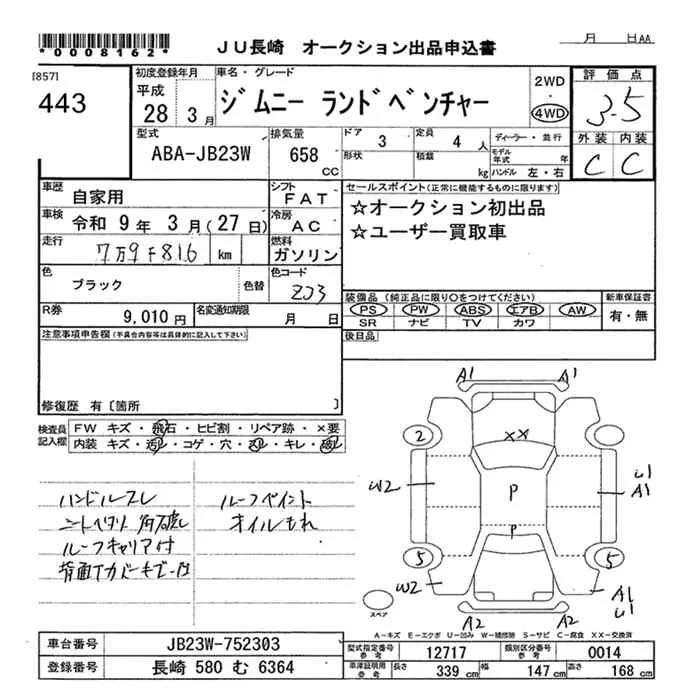 *0008162*
JU長崎 オークション出品申込書
月 日AA
[857]
443
初度登録年月
平成
28 3月
車名・グレード
ジムニー ランドベンチャー
2WD
4WD
評価点
3.5
外装 内装
C C
型式
ABA-JB23W
排気量
658
CC
ドア 3
形状
定員 4 人
積載 kg
ディーラー・並行
モデル年式 年
ハンドル 左・右
車歴
自家用
シフト
FAT
車検
令和 9年 3月(27日)
冷房
AC
走行
7万9千816 km
燃料
ガソリン
色
ブラック
色替
色コード
ZJ3
R券
9,010円
名変通知期限
月 日
セールスポイント(正常に機能するものに限ります)
☆オークション初出品
☆ユーザー買取車
装備品(純正品に限り○をつけてください)
PS PW ABS エアB AW
SR ナビ TV カワ
新車保証書
有・無
後日品
注意事項申告欄(不具合内容等は具体的に記入して下さい)
修復歴 有〔箇所 〕
検査員記入欄
FW キズ・飛石・ヒビ割・リペア跡・×要
内装 キズ・汚レ・コゲ・穴・
・キレ・破レ
ハンドルスレ
ルーフペイント
オイルもれ
ルーフキャリア付
背面Tカバーキズ
A1 A1
2
XX
W2
P
U1
A1
P
5 5
W2
A1
U1
A2 A2
スペア
A-キズ E-エクボ U-凹み W-補修跡 S-サビ C-腐食 XX-交換済
車台番号 JB23W-752303
登録番号 長崎 580 む 6364
型式指定番号 参考 12717
類別区分番号 参考 0014
車庫証明用 参考 長さ 339 cm 幅 147 cm 高さ 168 cm